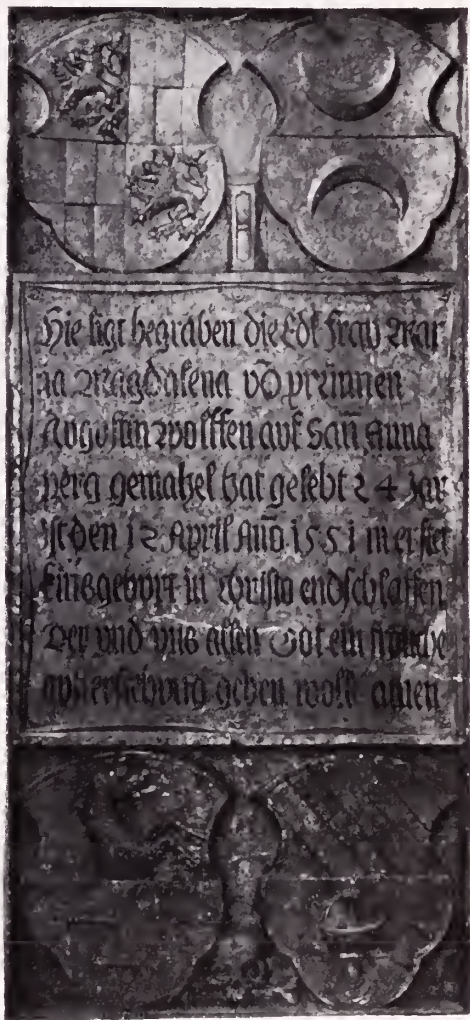 Hie ligt begraben die Edl fraw Mar
ia Magdalena vō prūnnen
Augustin wolffen auf San̄ Anna
perg gemahel hat gelebt 24 Jar
ist den 12 April Año 1551 in erster
kindsgeburt in Christo endschlaffen
Der vnd vns allen Got ein froliche
aufferstehung geben woll amen